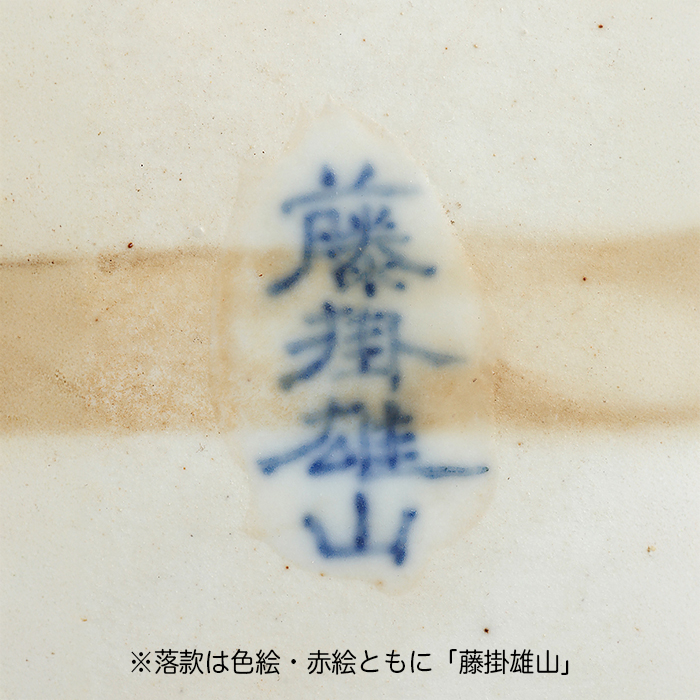 藤掛雄山
※落款は色絵・赤絵ともに「藤掛雄山」